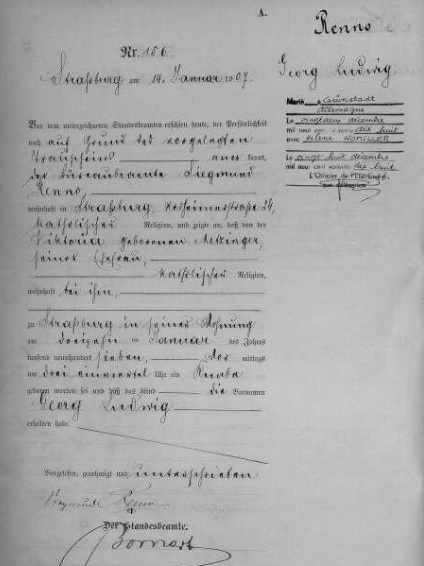 A.
Renno
Nr. 156
Georg Ludwig
Straßburg am 14. Januar 1907.
Marié à Grünstadt
Allemagne
Le vingt deux décembre
mil neuf cent dix huit
avec Hélène
Le vingt huit décembre
mil neuf cent dix huit
L'Officier de l'Etat Civil
par délégation
Vor dem unterzeichneten Standesbeamten erschien heute, der Persönlichkeit
nach auf Grund des vorgelegten
Trauscheins anerkannt,
der Büreaubeamte Siegmund
Renno,
wohnhaft in Straßburg,
katholischer Religion, und zeigte an, daß von der
Viktoria geborenen Metzinger,
seiner Ehefrau,
katholischer Religion,
wohnhaft bei ihm,
zu Straßburg in seiner Wohnung
am dreizehn ten Januar des Jahres
tausend neunhundert sieben, mittags
um drei einviertel Uhr ein Knabe
geboren worden sei und daß das Kind die Vornamen
Georg Ludwig
erhalten habe.
Vorgelesen, genehmigt und unterschrieben
Siegmund Renno
Der Standesbeamte.